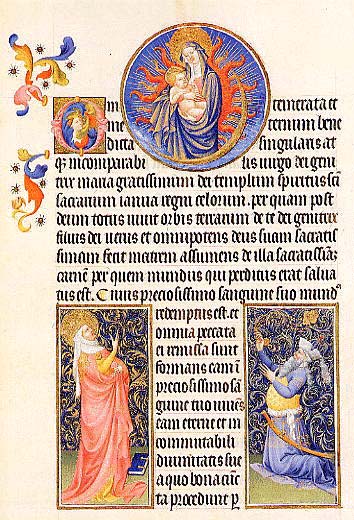 O in temerata et
in eternum bene
dicta singularis at
q3 incomparabi lis uirgo dei geni
trix maria gratissimum dei templum spiritus san
sacrarium ianua regni celorum. per quam post
deum totus uiuit orbis terrarum de te dei genitrix
filius dei uerus et omnipotens deus suam sacratis
simam fecit matrem assumens de illa sacratissiã
carnẽ per quem mundus qui perditus erat salua
tus est. Cuius preciosissimo sanguine suo mund9
redemptus est. et
omnia peccata
ei remissa sunt
preciosissimo sã
guine tuo
eam eterne et in
commutabili
diuinitatis sue
a quo bona cũc
ta procedunt p